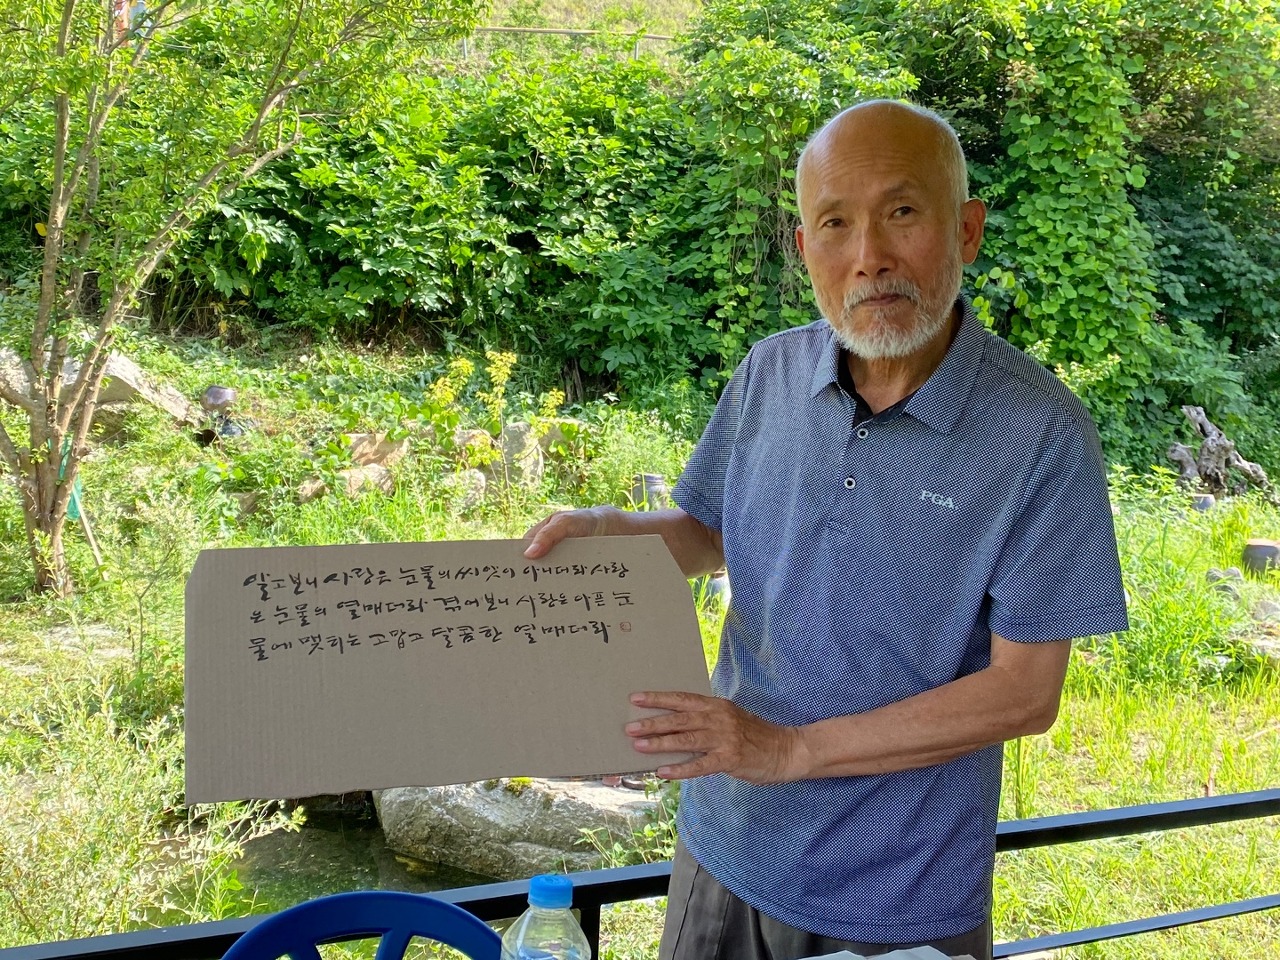 알고보니 사랑은 눈물의 씨앗이 아니더라 사랑
은 눈물의 열매더라 겪어보니 사랑은 아픈 눈
물에 맺히는 고맙고 달콤한 열매더라
PGA